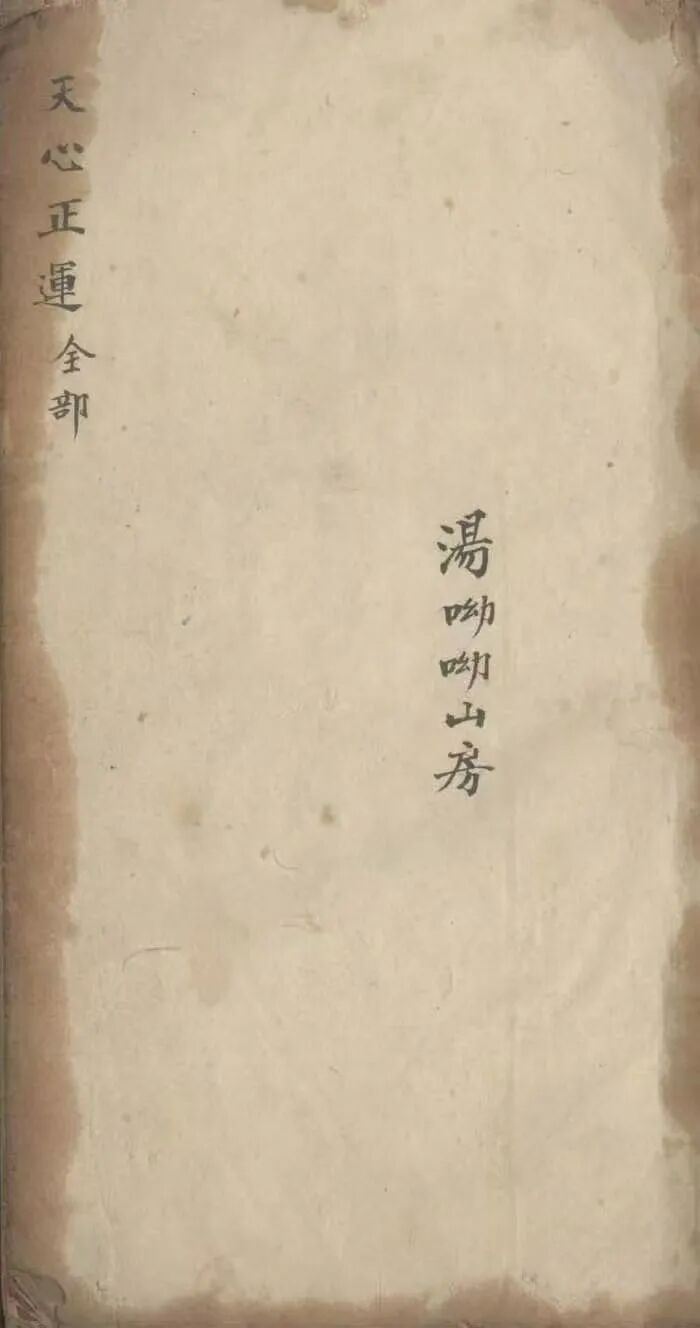 湯呦呦山房
天心正運全部